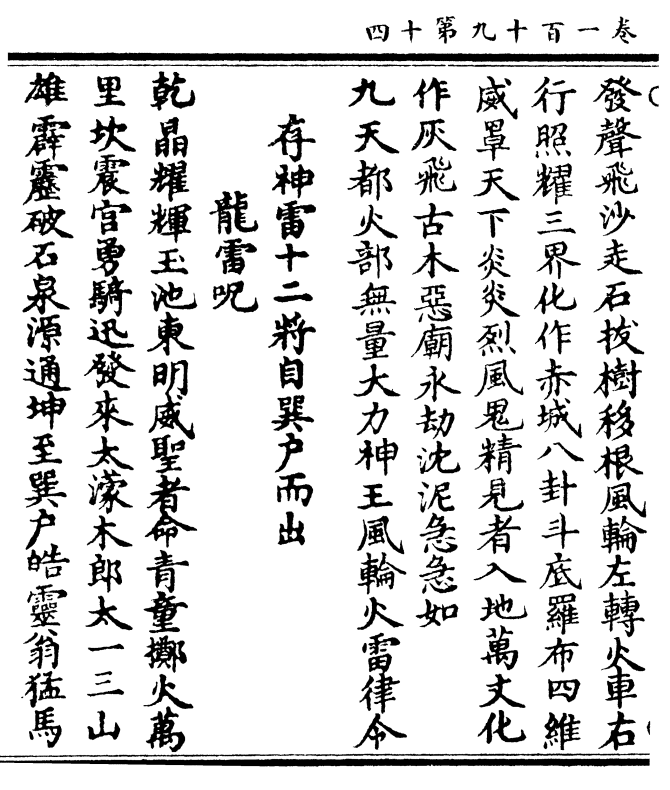 卷一百十九第十四
發聲飛沙走石拔樹移根風輪左轉火車右
行照耀三界化作赤城八卦斗底羅布四維
威罩天下炎炎烈風鬼精見者入地萬丈化
作灰飛古木惡廟永劫沈泥急急如
九天都火部無量大力神王風輪火雷律令
存神雷十二將自巽户而出
龍雷呪
乾晶耀輝玉池東明威聖者命青童擲火萬
里坎震宫勇騎迅發來太濛木郎太一三山
雄霹靂破石泉源通坤至巽户皓靈翁猛馬